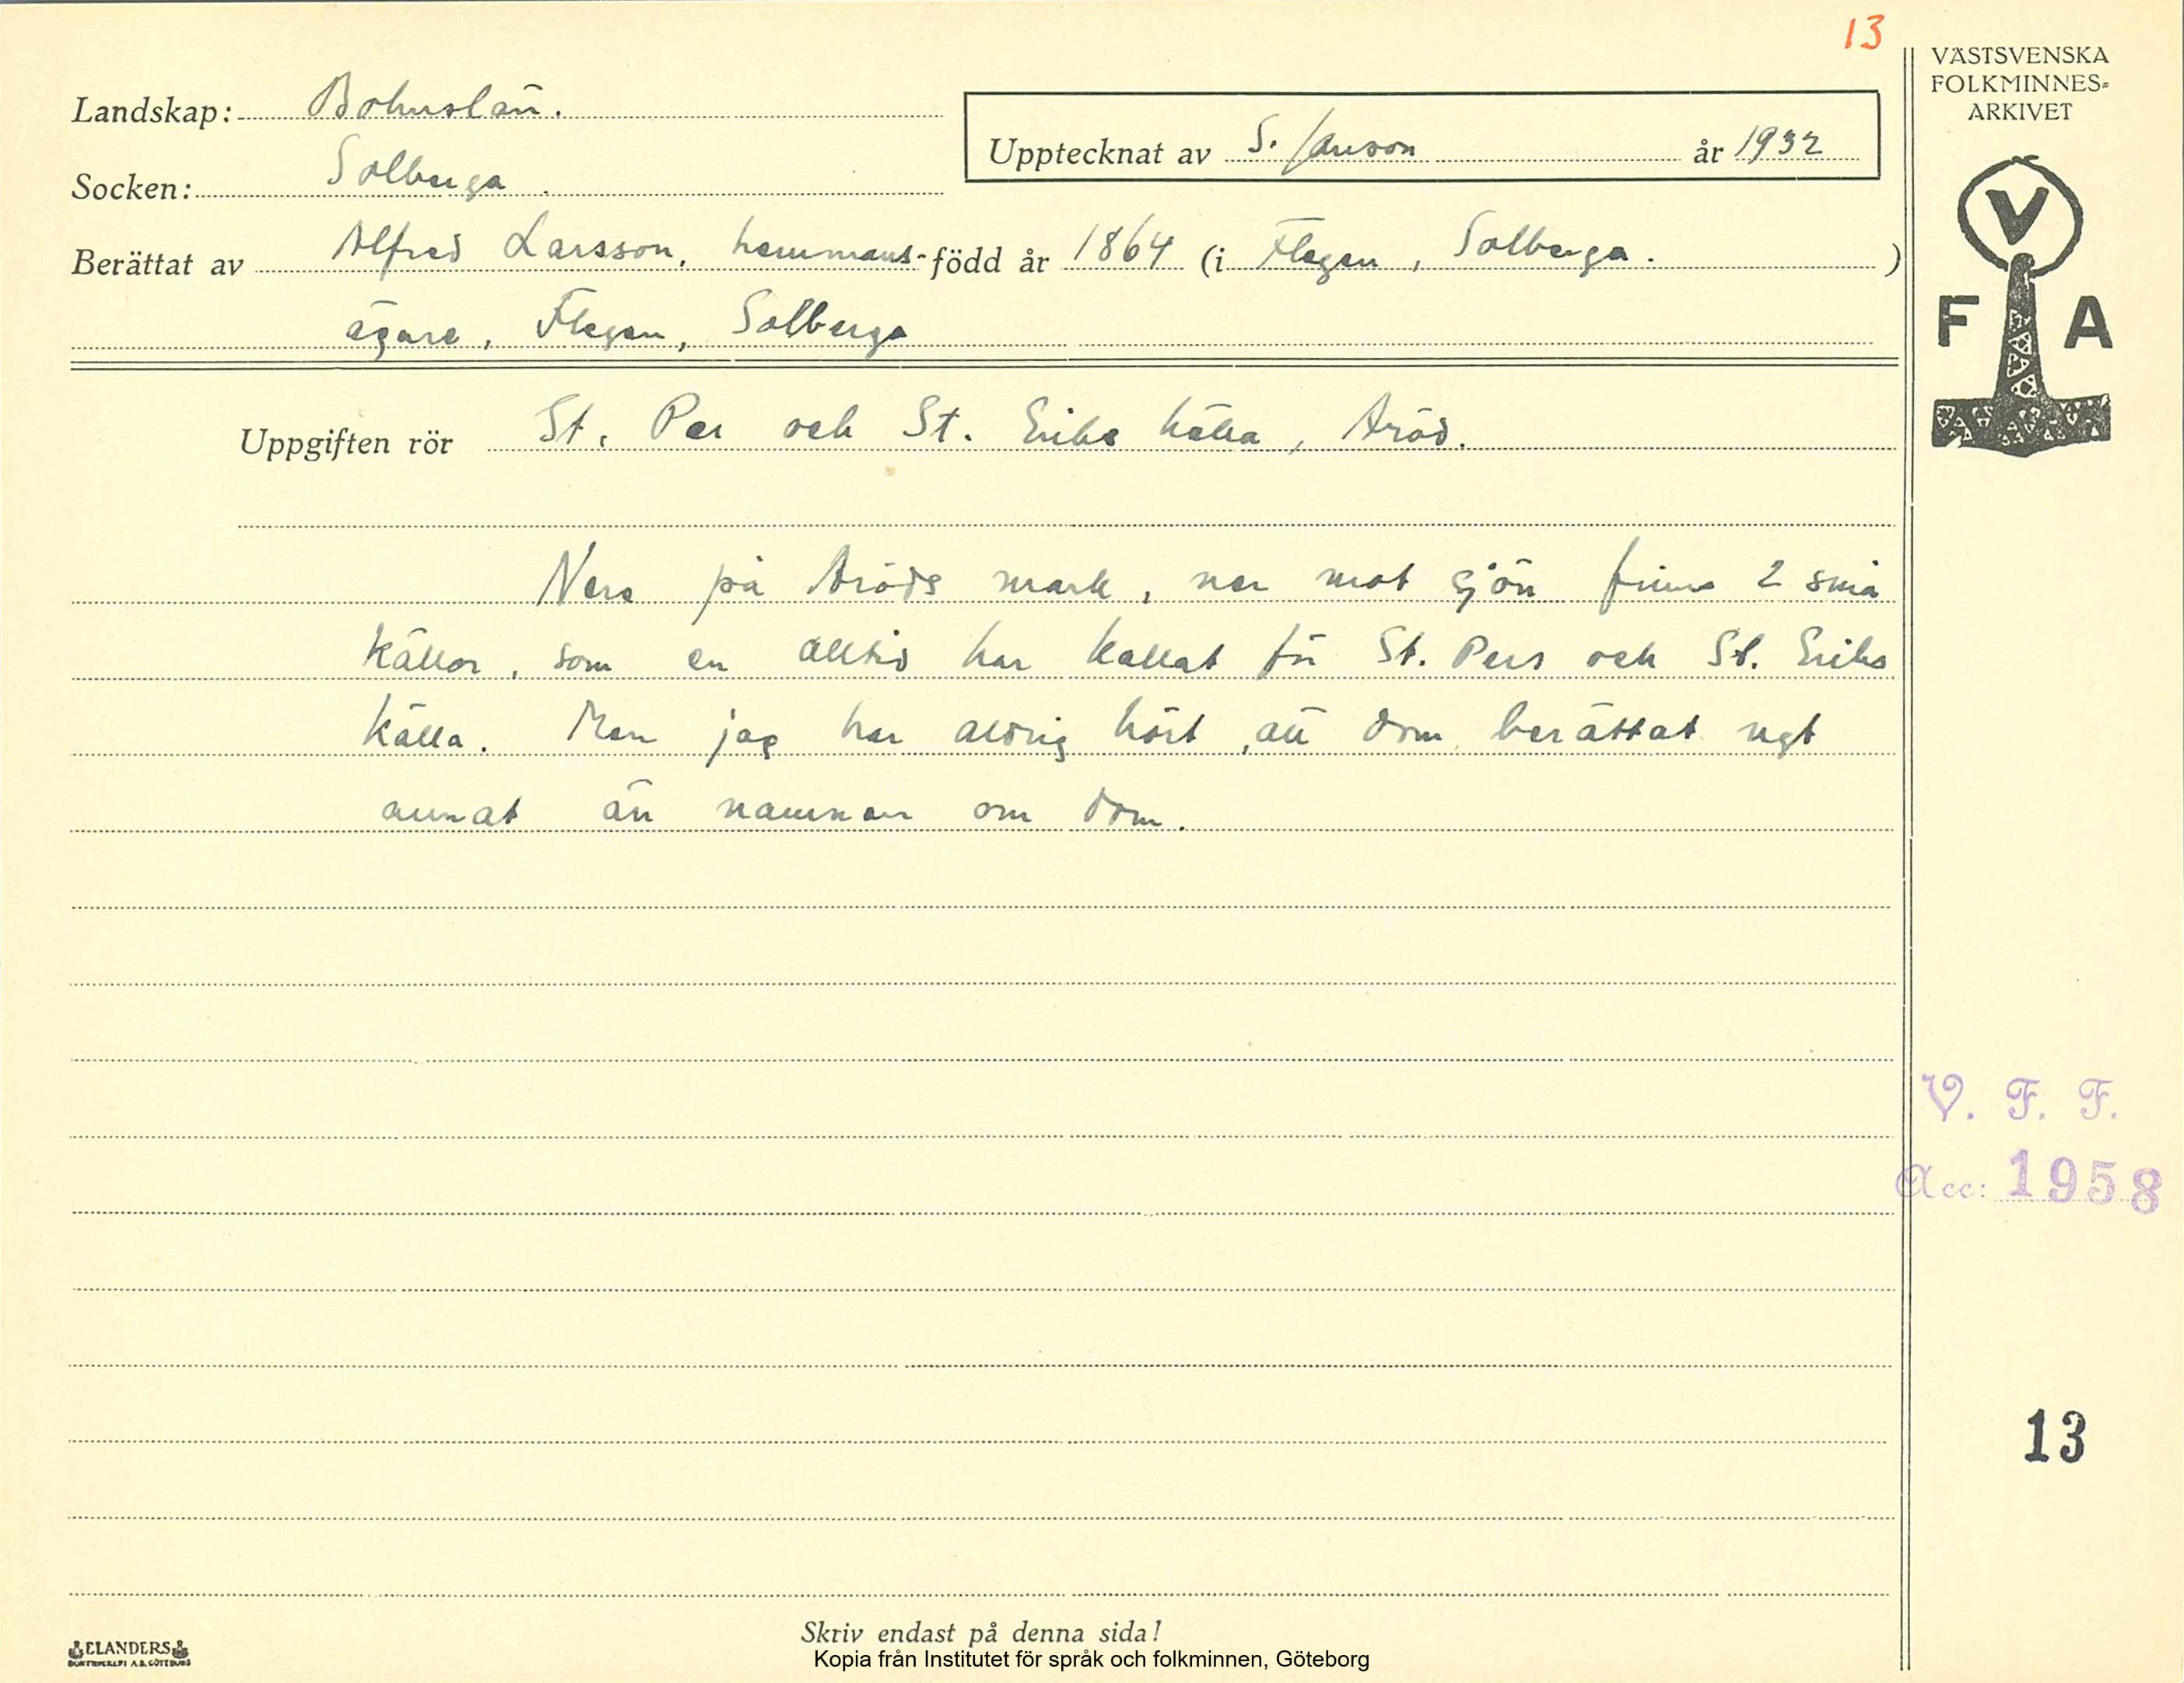 13
VÄSTSVENSKA
FOLKMINNES-
ARKIVET
Landskap: Bohuslän.
Upptecknat av S. Janson år 1932
Socken: Solberga.
Berättat av Alfred Larsson, hemmans- född år 1864 (i Flegen, Solberga.)
ägare, Flegen, Solberga
V
F A
Uppgiften rör St. Per och St. Eriks källa, Aröd.
Nere på Aröds mark, ner mot sjön finns 2 små
källor, som en alltid har kallat för St. Pers och St. Eriks
källa. Men jag har aldrig hört, att dom berättat ngt
annat än namnen om dom.
V. F. F.
Acc: 1958
13
Skriv endast på denna sida!
ELANDERS
A.B. GÖTEBORG
Kopia från Institutet för språk och folkminnen, Göteborg